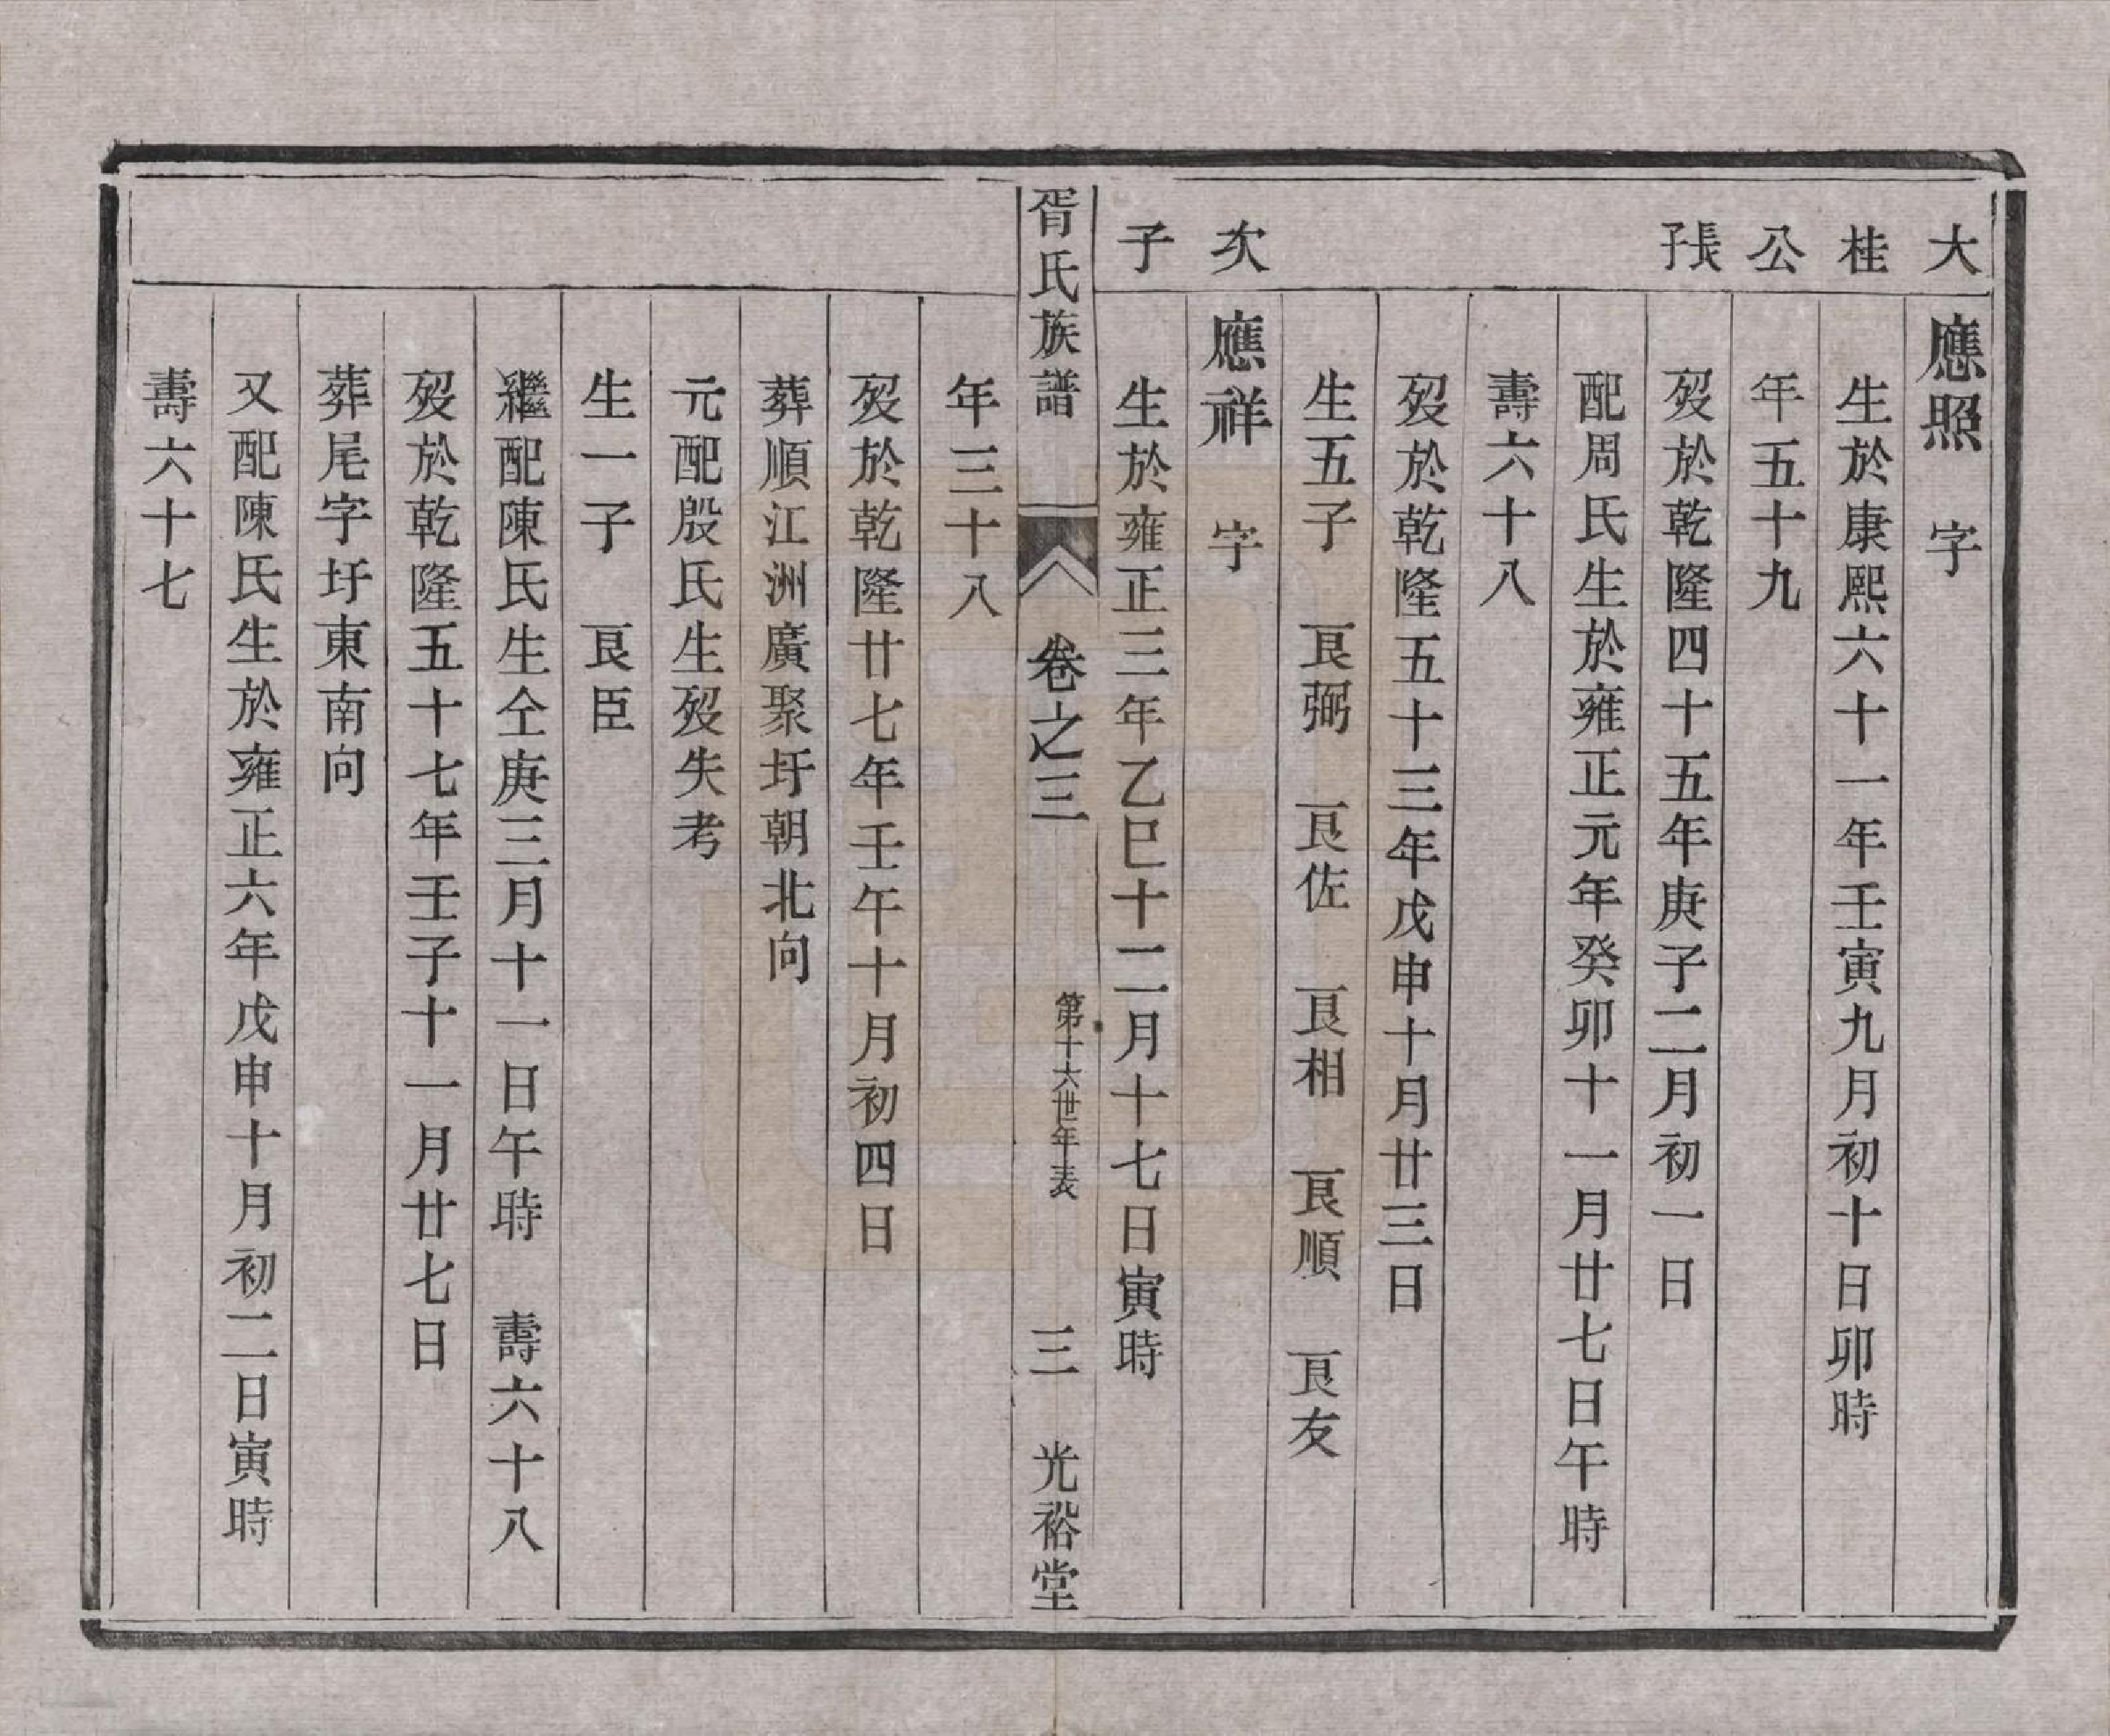 大桂公長子
應照　字
生於康熙六十一年壬寅九月初十日卯時
年五十九
歿於乾隆四十五年庚子二月初一日
配周氏生於雍正元年癸卯十一月廿七日午時
壽六十八
歿於乾隆五十三年戊申十月廿三日
生五子　良弼　良佐　良相　良順　良友
次子
應祥　字
生於雍正三年乙巳十二月十七日寅時
胥氏族譜　卷之三　第十六世年表　三　光裕堂
年三十八
歿於乾隆廿七年壬午十月初四日
葬順江洲廣聚圩朝北向
元配殷氏生歿失考
生一子　良臣
繼配陳氏生仝庚三月十一日午時　壽六十八
歿於乾隆五十七年壬子十一月廿七日
葬尾字圩東南向
又配陳氏生於雍正六年戊申十月初二日寅時
壽六十七